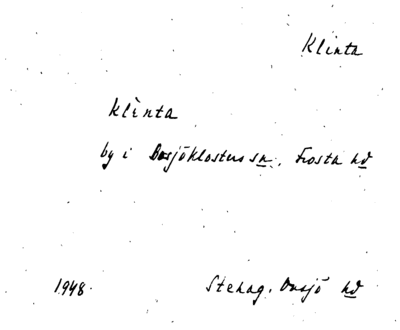 Klinta
klìnta
by i Bosjöklosters sn, Frosta hd
1948. Stehag, Onsjö hd